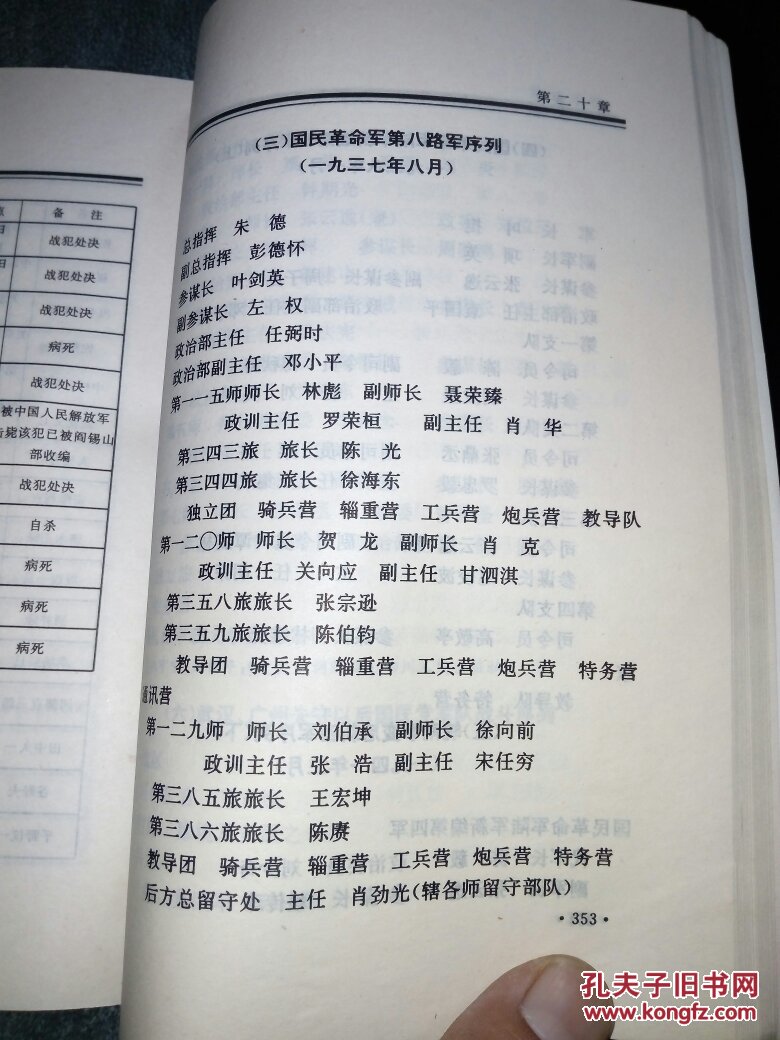 备 注
战犯处决
战犯处决
战犯处决
病死
战犯处决
被中国人民解放军
击毙该犯已被阎锡山
部收编
战犯处决
自杀
病死
病死
病死
第二十章
(三)国民革命军第八路军序列
(一九三七年八月)
总指挥 朱 德
副总指挥 彭德怀
参谋长 叶剑英
副参谋长 左 权
政治部主任 任弼时
政治部副主任 邓小平
第一一五师师长 林彪 副师长 聂荣臻
政训主任 罗荣桓 副主任 肖 华
第三四三旅 旅长 陈 光
第三四四旅 旅长 徐海东
独立团 骑兵营 辎重营 工兵营 炮兵营 教导队
第一二〇师 师长 贺 龙 副师长 肖 克
政训主任 关向应 副主任 甘泗淇
第三五八旅旅长 张宗逊
第三五九旅旅长 陈伯钧
教导团 骑兵营 辎重营 工兵营 炮兵营 特务营
通讯营
第一二九师 师长 刘伯承 副师长 徐向前
政训主任 张 浩 副主任 宋任穷
第三八五旅旅长 王宏坤
第三八六旅旅长 陈赓
教导团 骑兵营 辎重营 工兵营 炮兵营 特务营
后方总留守处 主任 肖劲光(辖各师留守部队)
·353·
孔夫子旧书网
www.kongfz.com